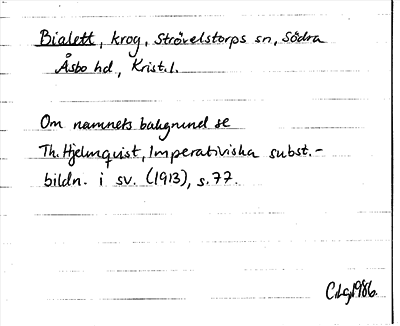 Bialett, krog, Strövelstorps sn, Södra
Åsbo hd, Krist.l.
Om namnets bakgrund se
Th. Hjelmquist, Imperativiska subst.-
bildn. i sv. (1913), s. 77.
1986.